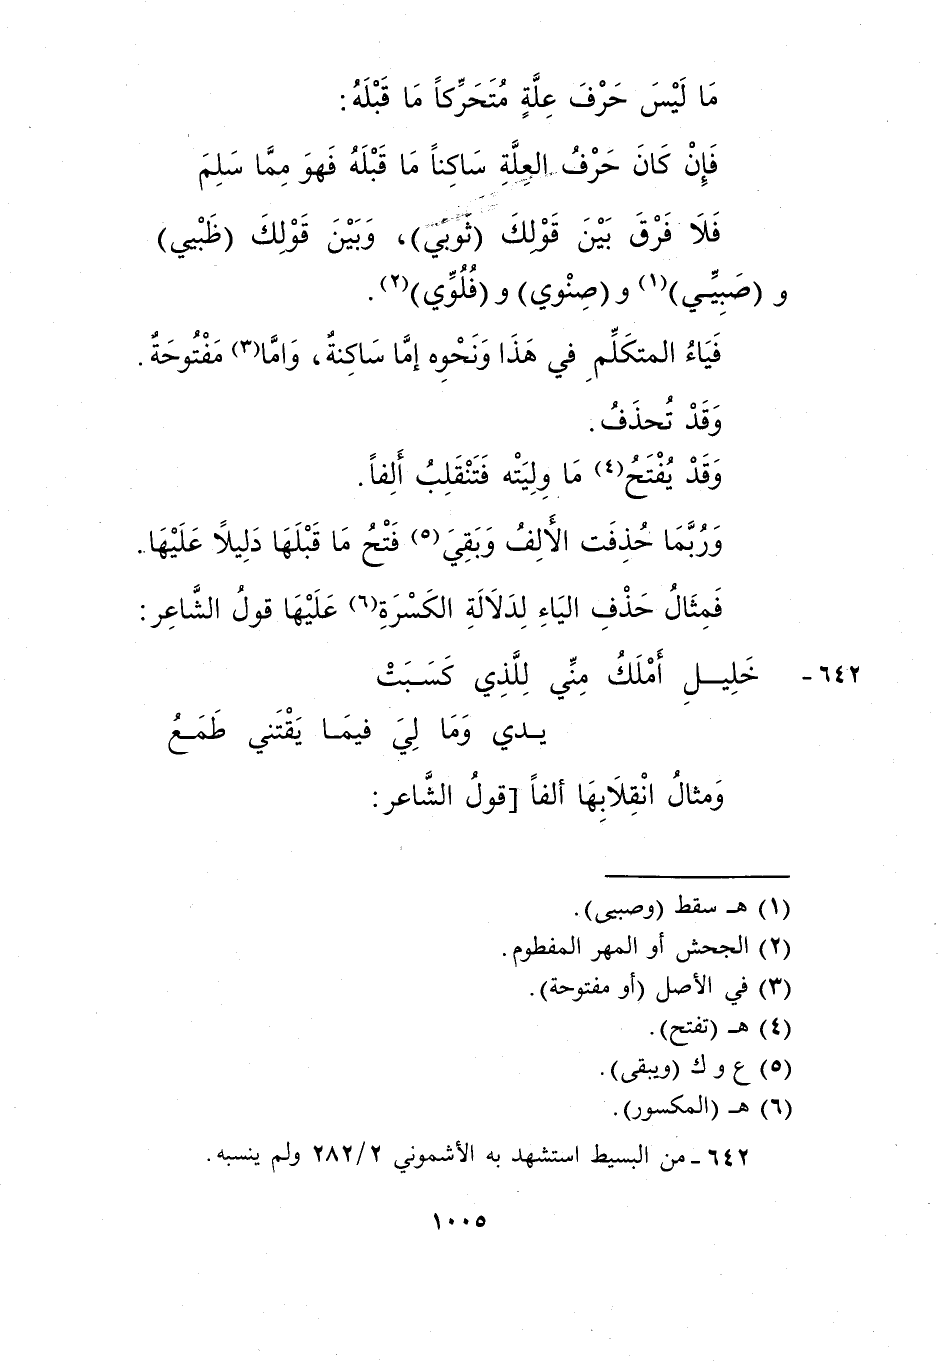 مَا لَيْسَ حَرْفَ عِلَّةٍ مُتَحَرِّكاً مَا قَبْلَهُ:
فَإِنْ كَانَ حَرْفُ العِلَّةِ سَاكِناً مَا قَبْلَهُ فَهوَ مِمَّا سَلِمَ
فَلَا فَرْقَ بَيْنَ قَوْلِكَ (ثَوْبَيْ)، وَبَيْنَ قَوْلِكَ (ظَبْيي)
و (صَبِيِّي)(١) و (صِنْوي) و (فُلُوِّي)(٢).
فَيَاءُ المتكَلِّمِ في هَذَا وَنَحْوِه إمَّا سَاكِنةٌ، وَامَّا(٣) مَفْتُوحَةٌ.
وَقَدْ تُحذَفُ.
وَقَدْ يُفْتَحُ(٤) مَا وِلِيَتْه فَتَنْقَلِبُ أَلِفاً.
وَرُبَّمَا حُذِفَت الأَلِفُ وَبَقِيَ(٥) فَتْحُ مَا قَبْلَهَا دَلِيلاً عَلَيْهَا.
فَمِثَالُ حَذْفِ اليَاءِ لِدَلَالَةِ الكَسْرَةِ(٦) عَلَيْهَا قولُ الشَّاعِر:
٦٤٢- خَلِيــلِ أَمْلَكُ مِنِّي لِلَّذِي كَسَـبَتْ
يــدي وَمَا لِيَ فيمَــا يَقْتَني طَمَــعُ
وَمثالُ انْقِلَابِهَا ألفاً [قولُ الشَّاعر:
(١) هـ سقط (وصبيى).
(٢) الجحش أو المهر المفطوم.
(٣) في الأصل (أو مفتوحة).
(٤) هـ (تفتح).
(٥) ع و ك (ويبقى).
(٦) هـ (المكسور).
٦٤٢ـ من البسيط استشهد به الأشموني ٢٨٢/٢ ولم ينسبه.
١٠٠٥